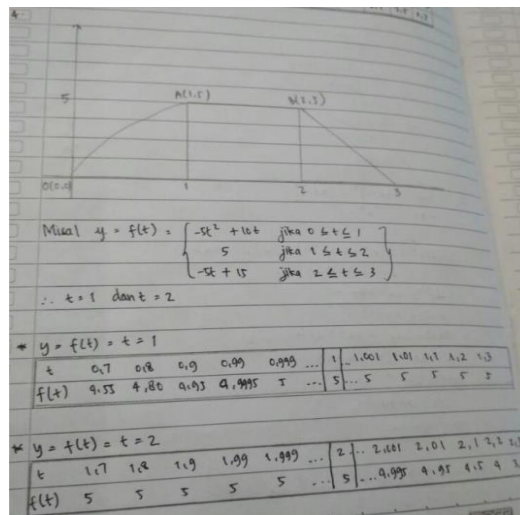 4.
5
A(1,5)
B(2,5)
O(0,0)
1
2
3
Misal y = f(t) = { -5t² + 10t jika 0 ≤ t ≤ 1
5 jika 1 ≤ t ≤ 2
-5t + 15 jika 2 ≤ t ≤ 3 }
∴ t = 1 dan t = 2
* y = f(t) = t = 1
t 0,7 0,8 0,9 0,99 0,999 ... 1 ... 1,001 1,01 1,1 1,2 1,3
f(t) 4.55 4,80 4.95 4,9995 5 ... 5 ... 5 5 5 5 5
* y = f(t) = t = 2
t 1,7 1,8 1,9 1,99 1,999 ... 2 ... 2,001 2,01 2,1 2,2
f(t) 5 5 5 5 5 ... 5 ... 4.995 4.95 4.5 4